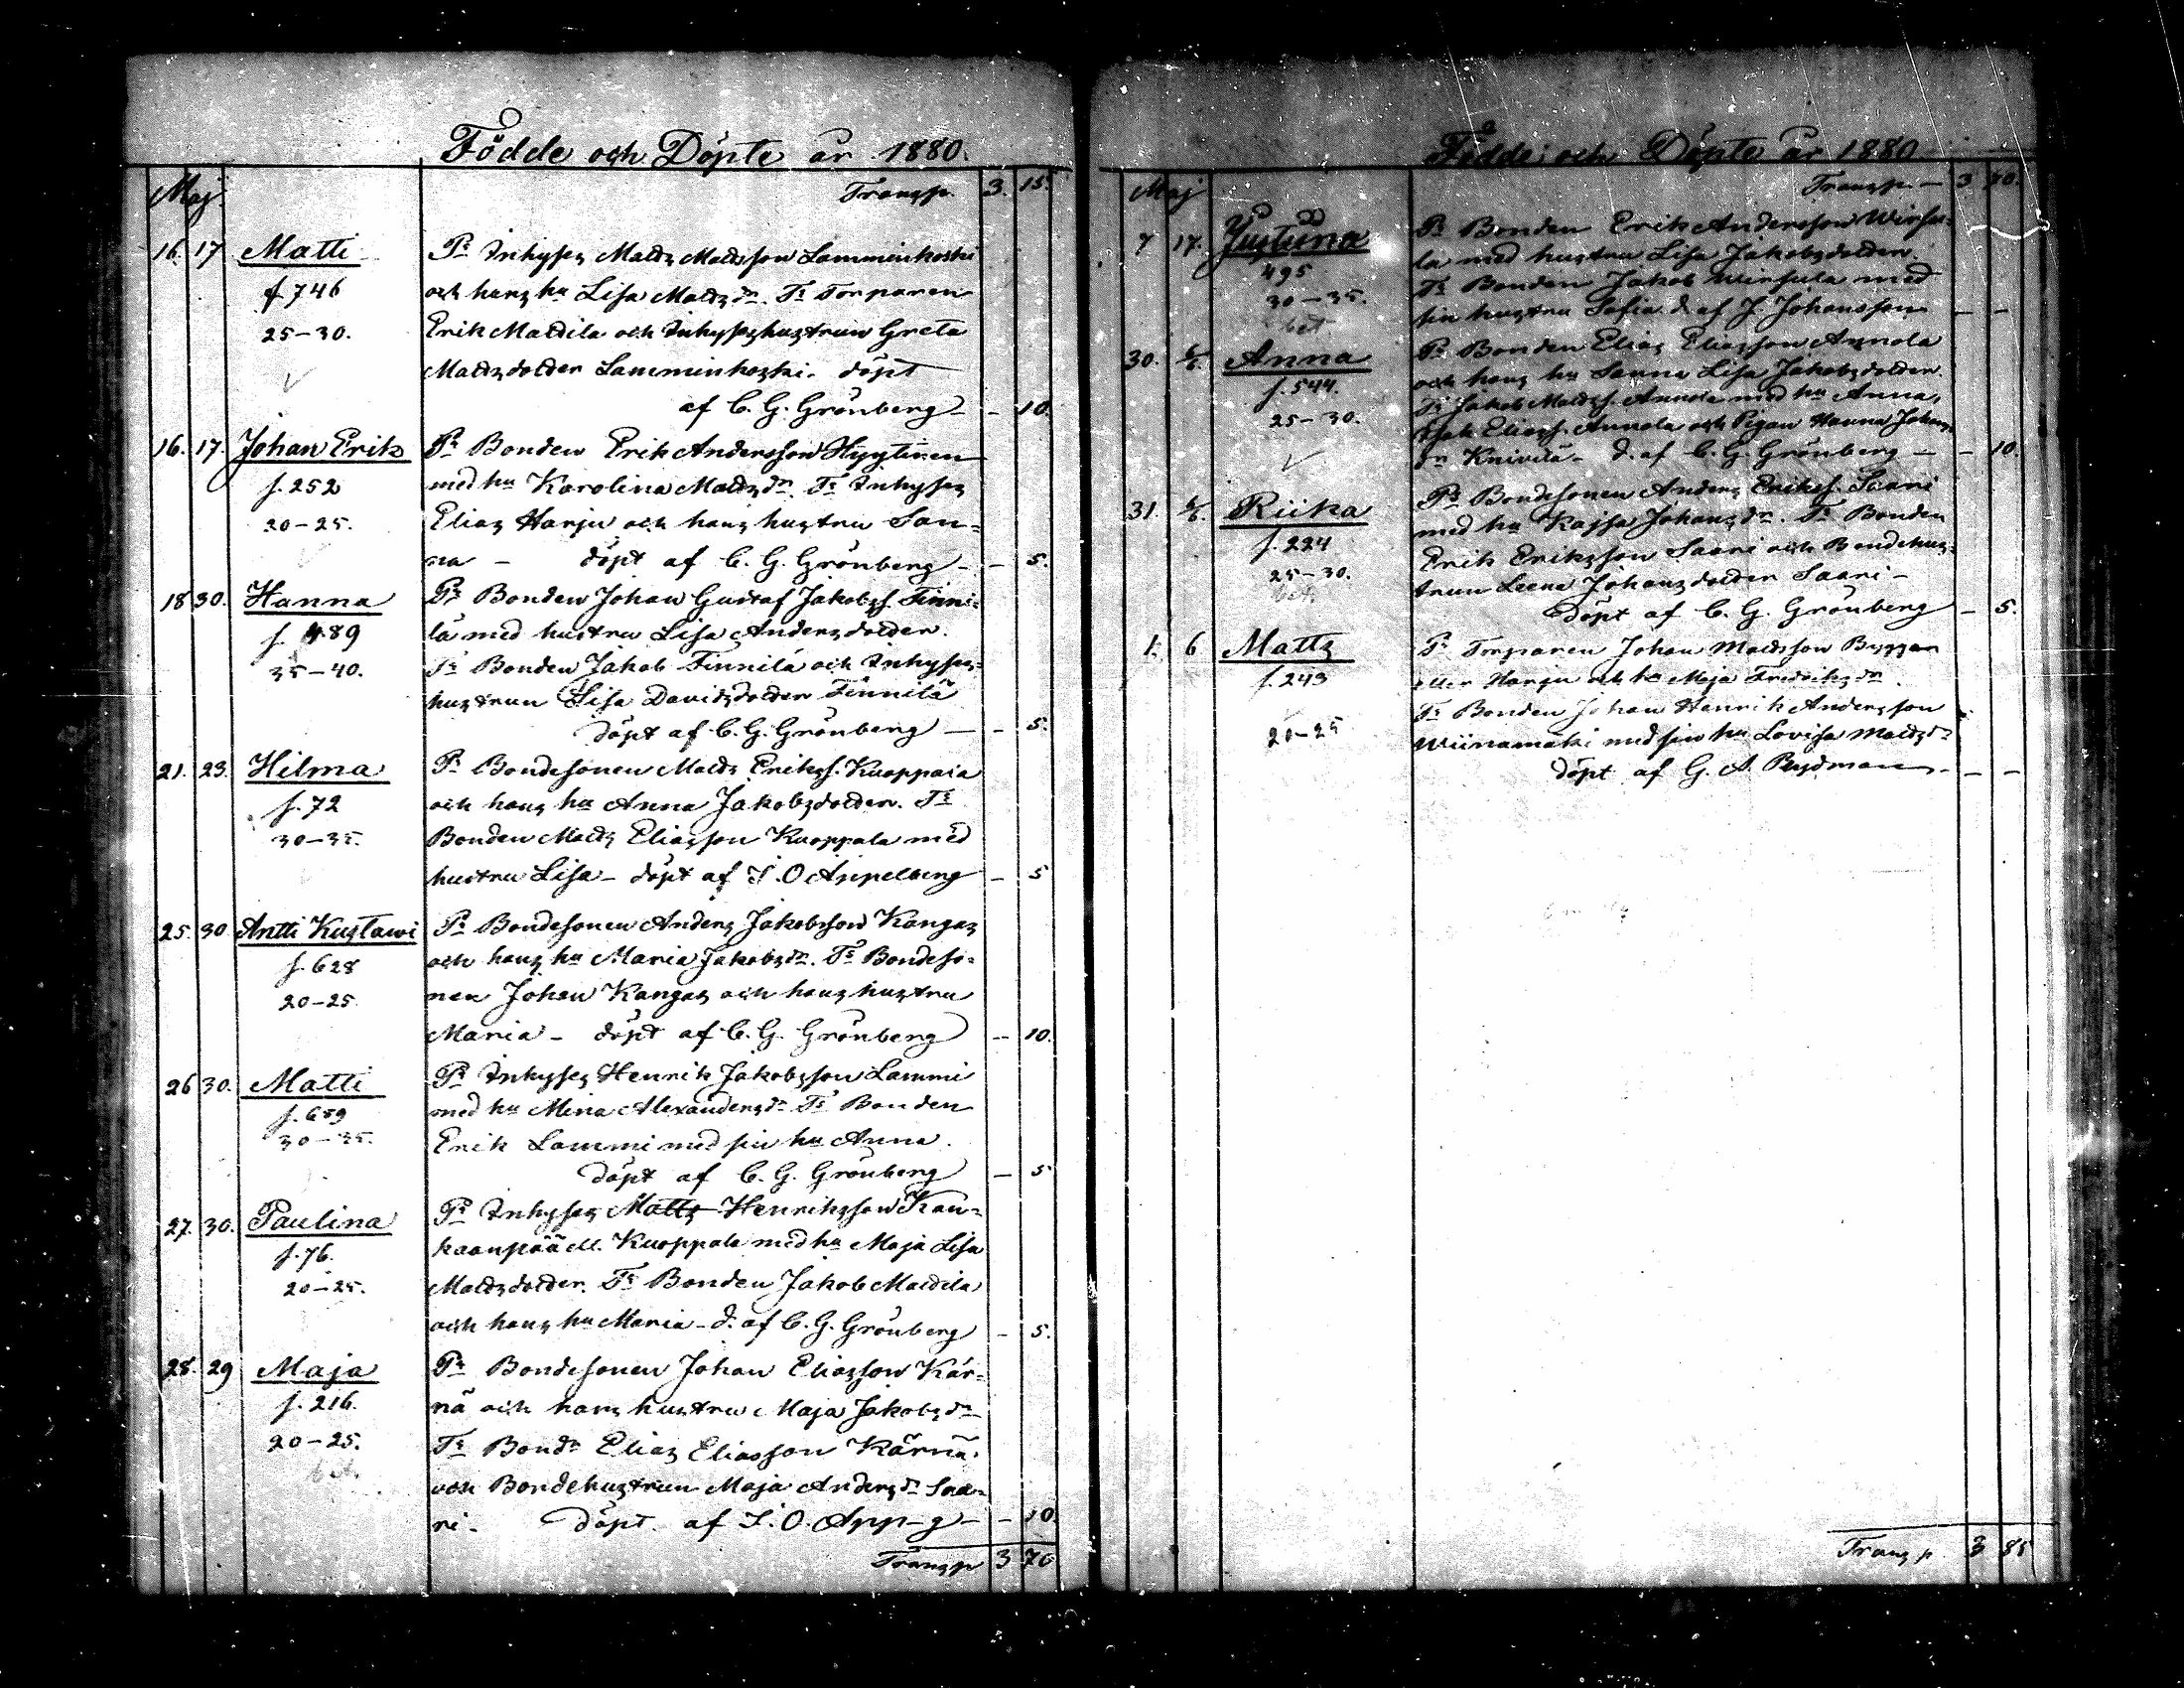 Födde och Döpte år 1880.
Maj
Transp. 3. 15.
16. 17 Matti Pr Inhyses Matts Mattsson Lamminkoski
f 746 och hans hu Lisa Mattsdr. Ts Torparen
25-30. Erik Mattila och Inhyseshustrun Greta
Mattsdotter Lamminkoski. döpt
af C. G. Grönberg - - 10.
16. 17. Johan Erik Pr Bonden Erik Andersson Hyytinen
f. 252 med hu Karolina Mattsdr. Ts Inhyses
20-25. Elias Harju och hans hustru San-
na - döpt af C. G. Grönberg - - 5.
18 30. Hanna Pr Bonden Johan Gustaf Jakobss. Finni-
f. 489 lä med hustru Lisa Andersdotter.
35-40. Ts Bonden Jakob Finnilä och Inhyses-
hustrun Lisa Davidsdotter Finnilä
döpt af C. G. Grönberg - - 5.
21. 23. Hilma Pr Bondesonen Matts Erikss. Kuoppala
f. 72 och hans hu Anna Jakobsdotter. Ts
30-35. Bonden Matts Eliasson Kuoppala med
hustru Lisa - döpt af I. O Appelberg - 5
25. 30 Antti Kustawi Pr Bondesonen Anders Jakobsson Kangas
f. 628 och hans hu Maria Jakobsdr. Ts Bondeso-
20-25. nen Johan Kangas och hans hustru
Maria - döpt af C. G. Grönberg - 10.
26 30. Matti Pr Inhyses Henrik Jakobsson Lammi
f. 659 med hu Mina Alexandersdr Ts Bonden
30-35. Erik Lammi med sin hu Anna.
döpt af C. G. Grönberg - 5
27. 30. Paulina Pr Inhyses Matts Henriksson Kan-
f. 76. kaanpää ell. Kuoppala med hu Maja Lisa
20-25. Mattsdotter. Ts Bonden Jakob Mattila
och hans hu Maria - d. af C. G. Grönberg - 5.
28. 29 Maja Pr Bondesonen Johan Eliasson Kär-
f. 216. nä och hans hustru Maja Jakobsdr
20-25. Ts Bondn Elias Eliasson Kärnä
bet. och Bondehustrun Maja Andersdr Saa-
ri. döpt af I. O. App-g - - 10
Transp 3 70
Födde och Döpte år 1880
Maj
Transp. - 3 70.
7 17. Justina Pr Bonden Erik Andersson Wirsu-
la med hustru Lisa Jakobsdotter.
495 Ts Bonden Jakob Wirsula med
30-35. sin hustru Sofia. d. af J. Johansson - -
bet
30. 6/6. Anna Pr Bonden Elias Eliasson Annola
f. 544. och hans hu Sanna Lisa Jakobsdotter.
Ts Jakob Mattss. Annola med hu Anna,
25-30. Eliass. Annola och Pigan Hanna Johans-
dr Knivilä - d. af C. G. Grönberg - - 10.
31. 6/6. Riika Pr Bondesonen Anders Erikss. Saari
f. 224 med hu Kajsa Johansdr. Ts Bonden
25-30. Erik Eriksson Saari och Bondehus-
bet. trun Leena Johansdotter Saari -
döpt af C. G. Grönberg - 5.
1. 6 Matts Pr Torparen Johan Mattsson Byggar
f. 243 eller Harju och hu Maja Fredriksdr.
Ts Bonden Johan Henrik Andersson
20-25 Wiinamäki med sin hu Lovisa Mattsdr
döpt af G. A. Rydman - - -
Transp. 3 85